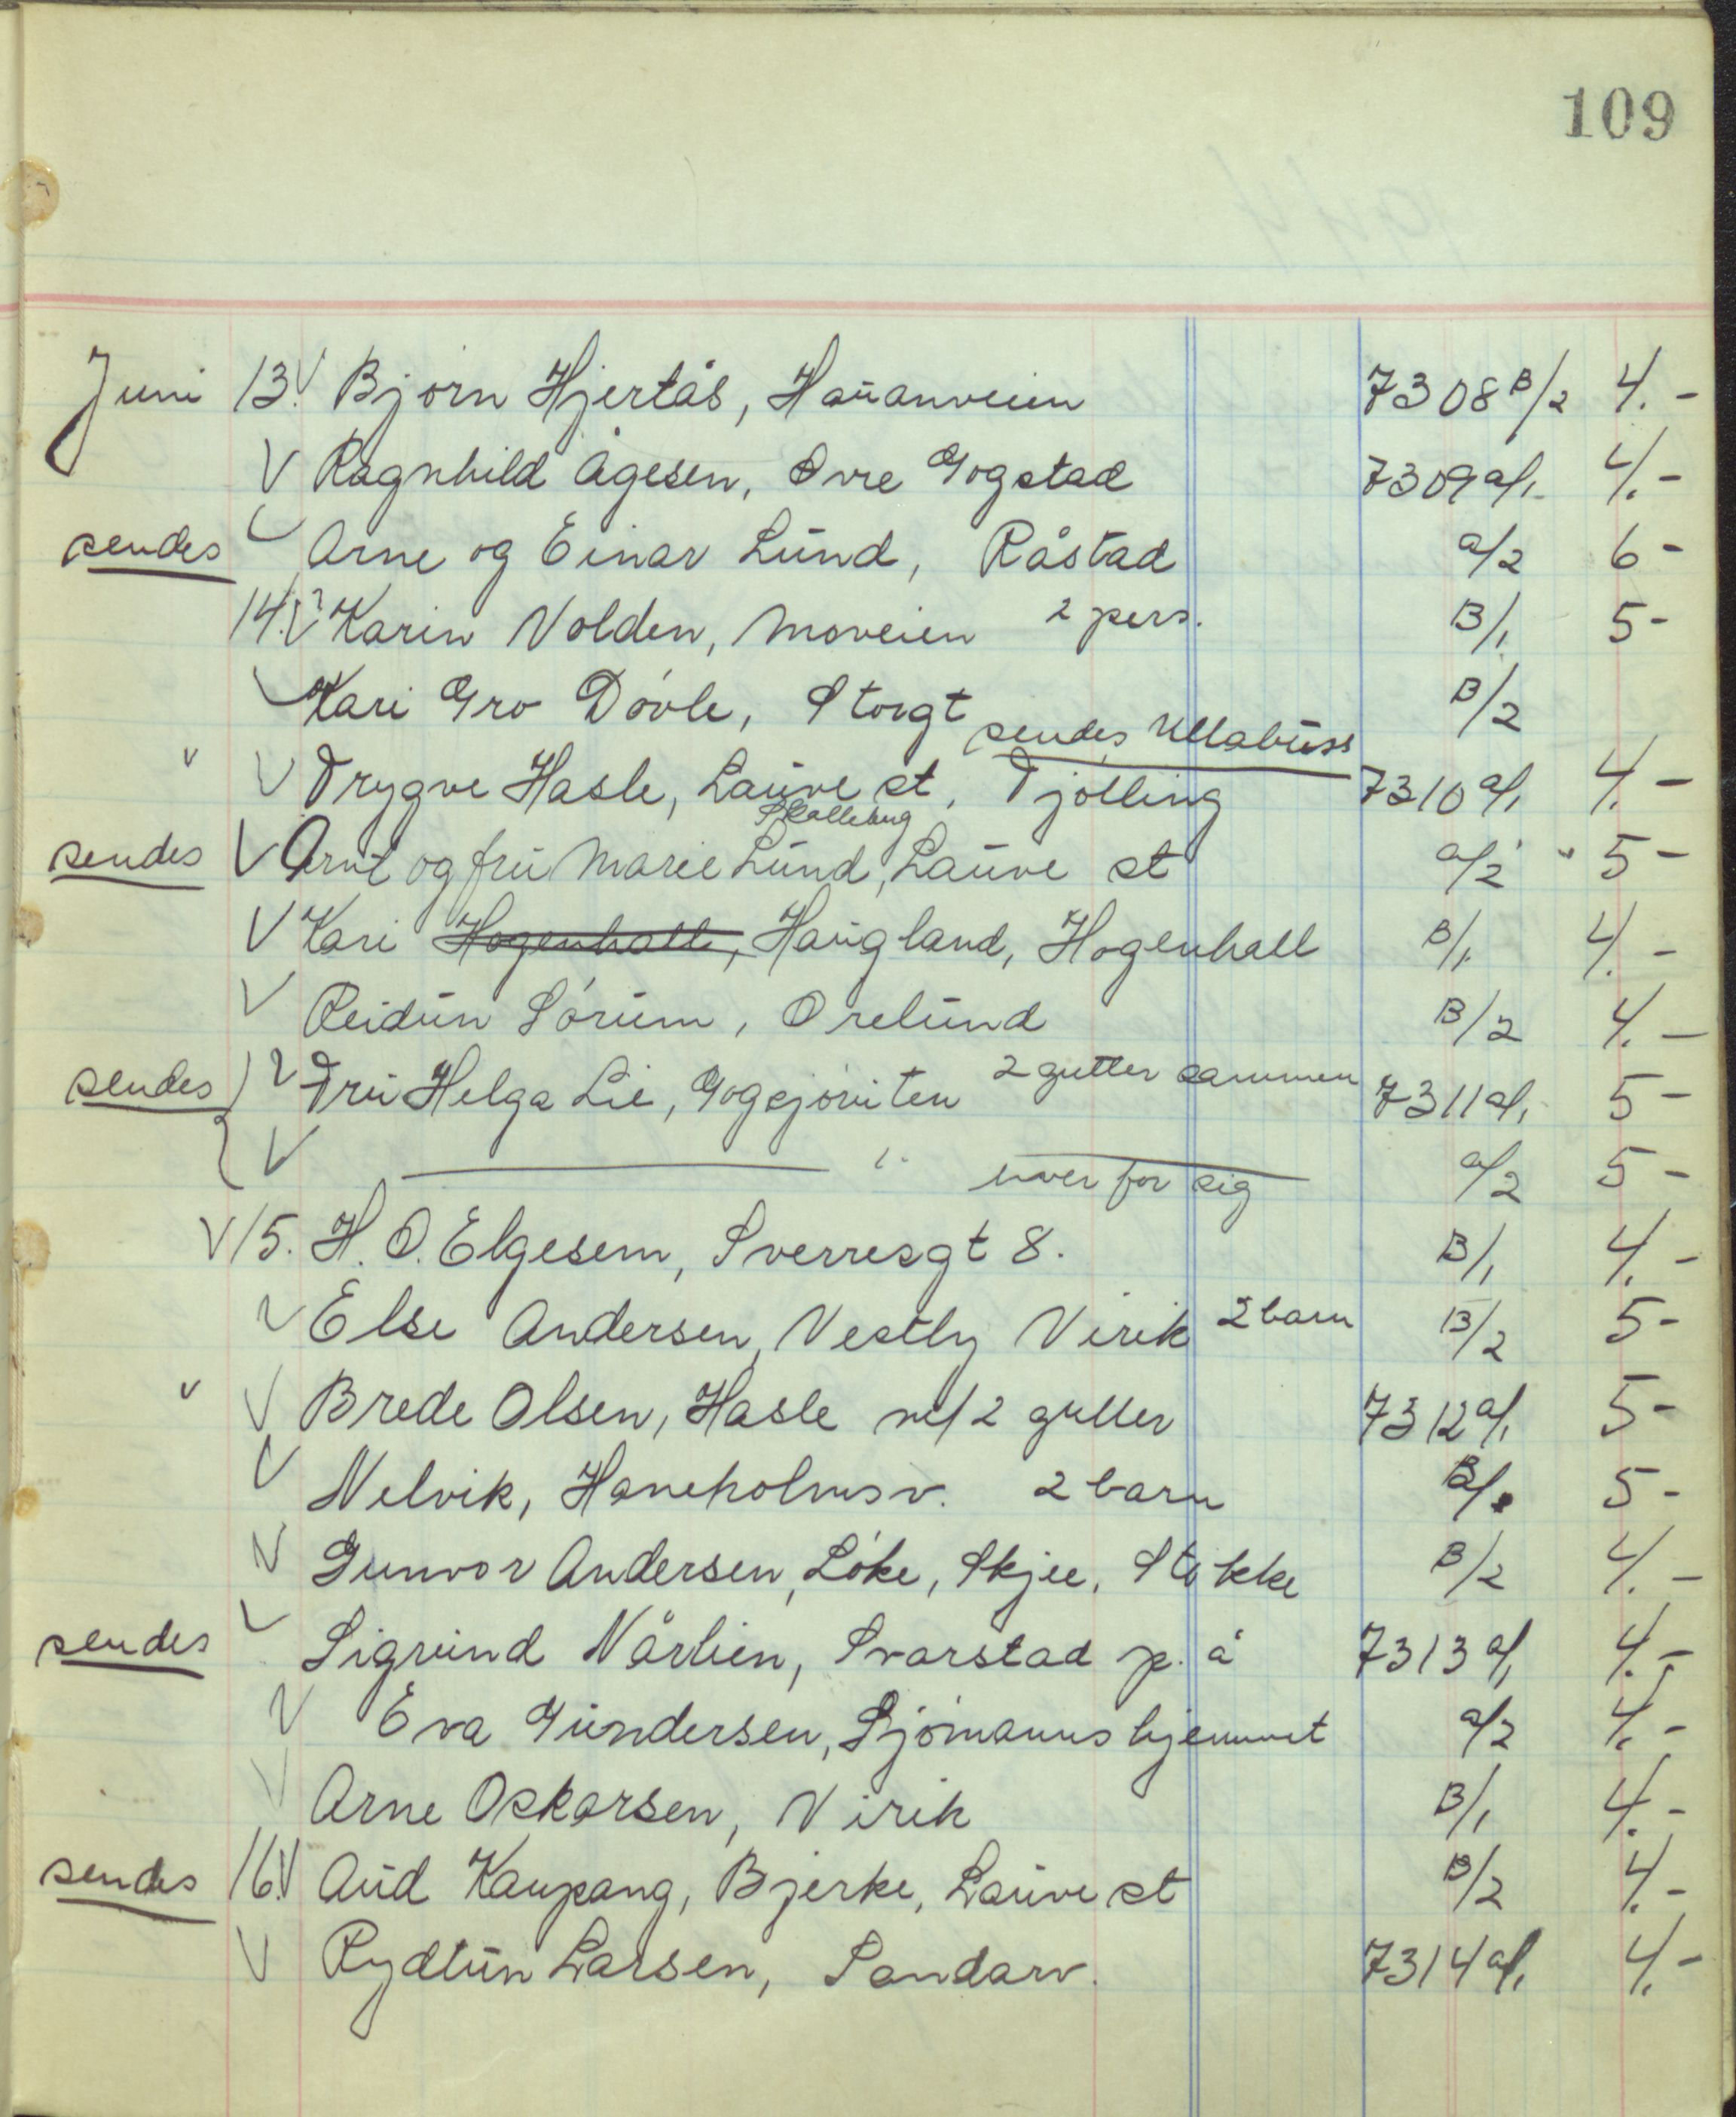 109
Juni 13. V Bjørn Hjertås, Hauanveien 7308 B/2 4.-
V Ragnhild Ågesen, Øvre Gogstad 7309 a/1 4.-
sendes V Arne og Einar Lund, Råstad a/2 6-
14. V Karin Volden, Moveien 2 pers. B/1 5-
V Kari Gro Døvle, Storgt B/2
sendes Ullabuss
V V Trygve Hasle, Lauve st, Tjølling 7310 a/1 4.-
Skalleberg
sendes V Arnt og fru Marie Lund, Lauve st a/2 " 5-
V Kari Hogenhall, Haugland, Hogenhall B/1 4.-
V Reidun Sørum, Orelund B/2 4.-
sendes V Fru Helga Lie, Gogsjøruten 2 gutter sammen 7311 a/1 5-
V " hver for sig a/2 5-
V 15. H. O. Elgesem, Sverresgt 8. B/1 4.-
V Else Andersen, Vestly Virik 2 barn B/2 5-
V V Brede Olsen, Hasle m/2 gutter 7312 a/1 5-
V Nelvik, Haneholmsv. 2 barn B/1 5-
V Gunvor Andersen, Løke, Skjee, Stokke B/2 4.-
sendes V Sigrund Nårlien, Svarstad p. å 7313 a/1 4.-
V Eva Gundersen, Sjømannshjemmet a/2 4.-
V Arne Oskarsen, Virik B/1 4.-
sendes 16. V Aud Kaupang, Bjerke, Lauve st B/2 4.-
V Rydtun Larsen, Sandarv. 7314 a/1 4.-